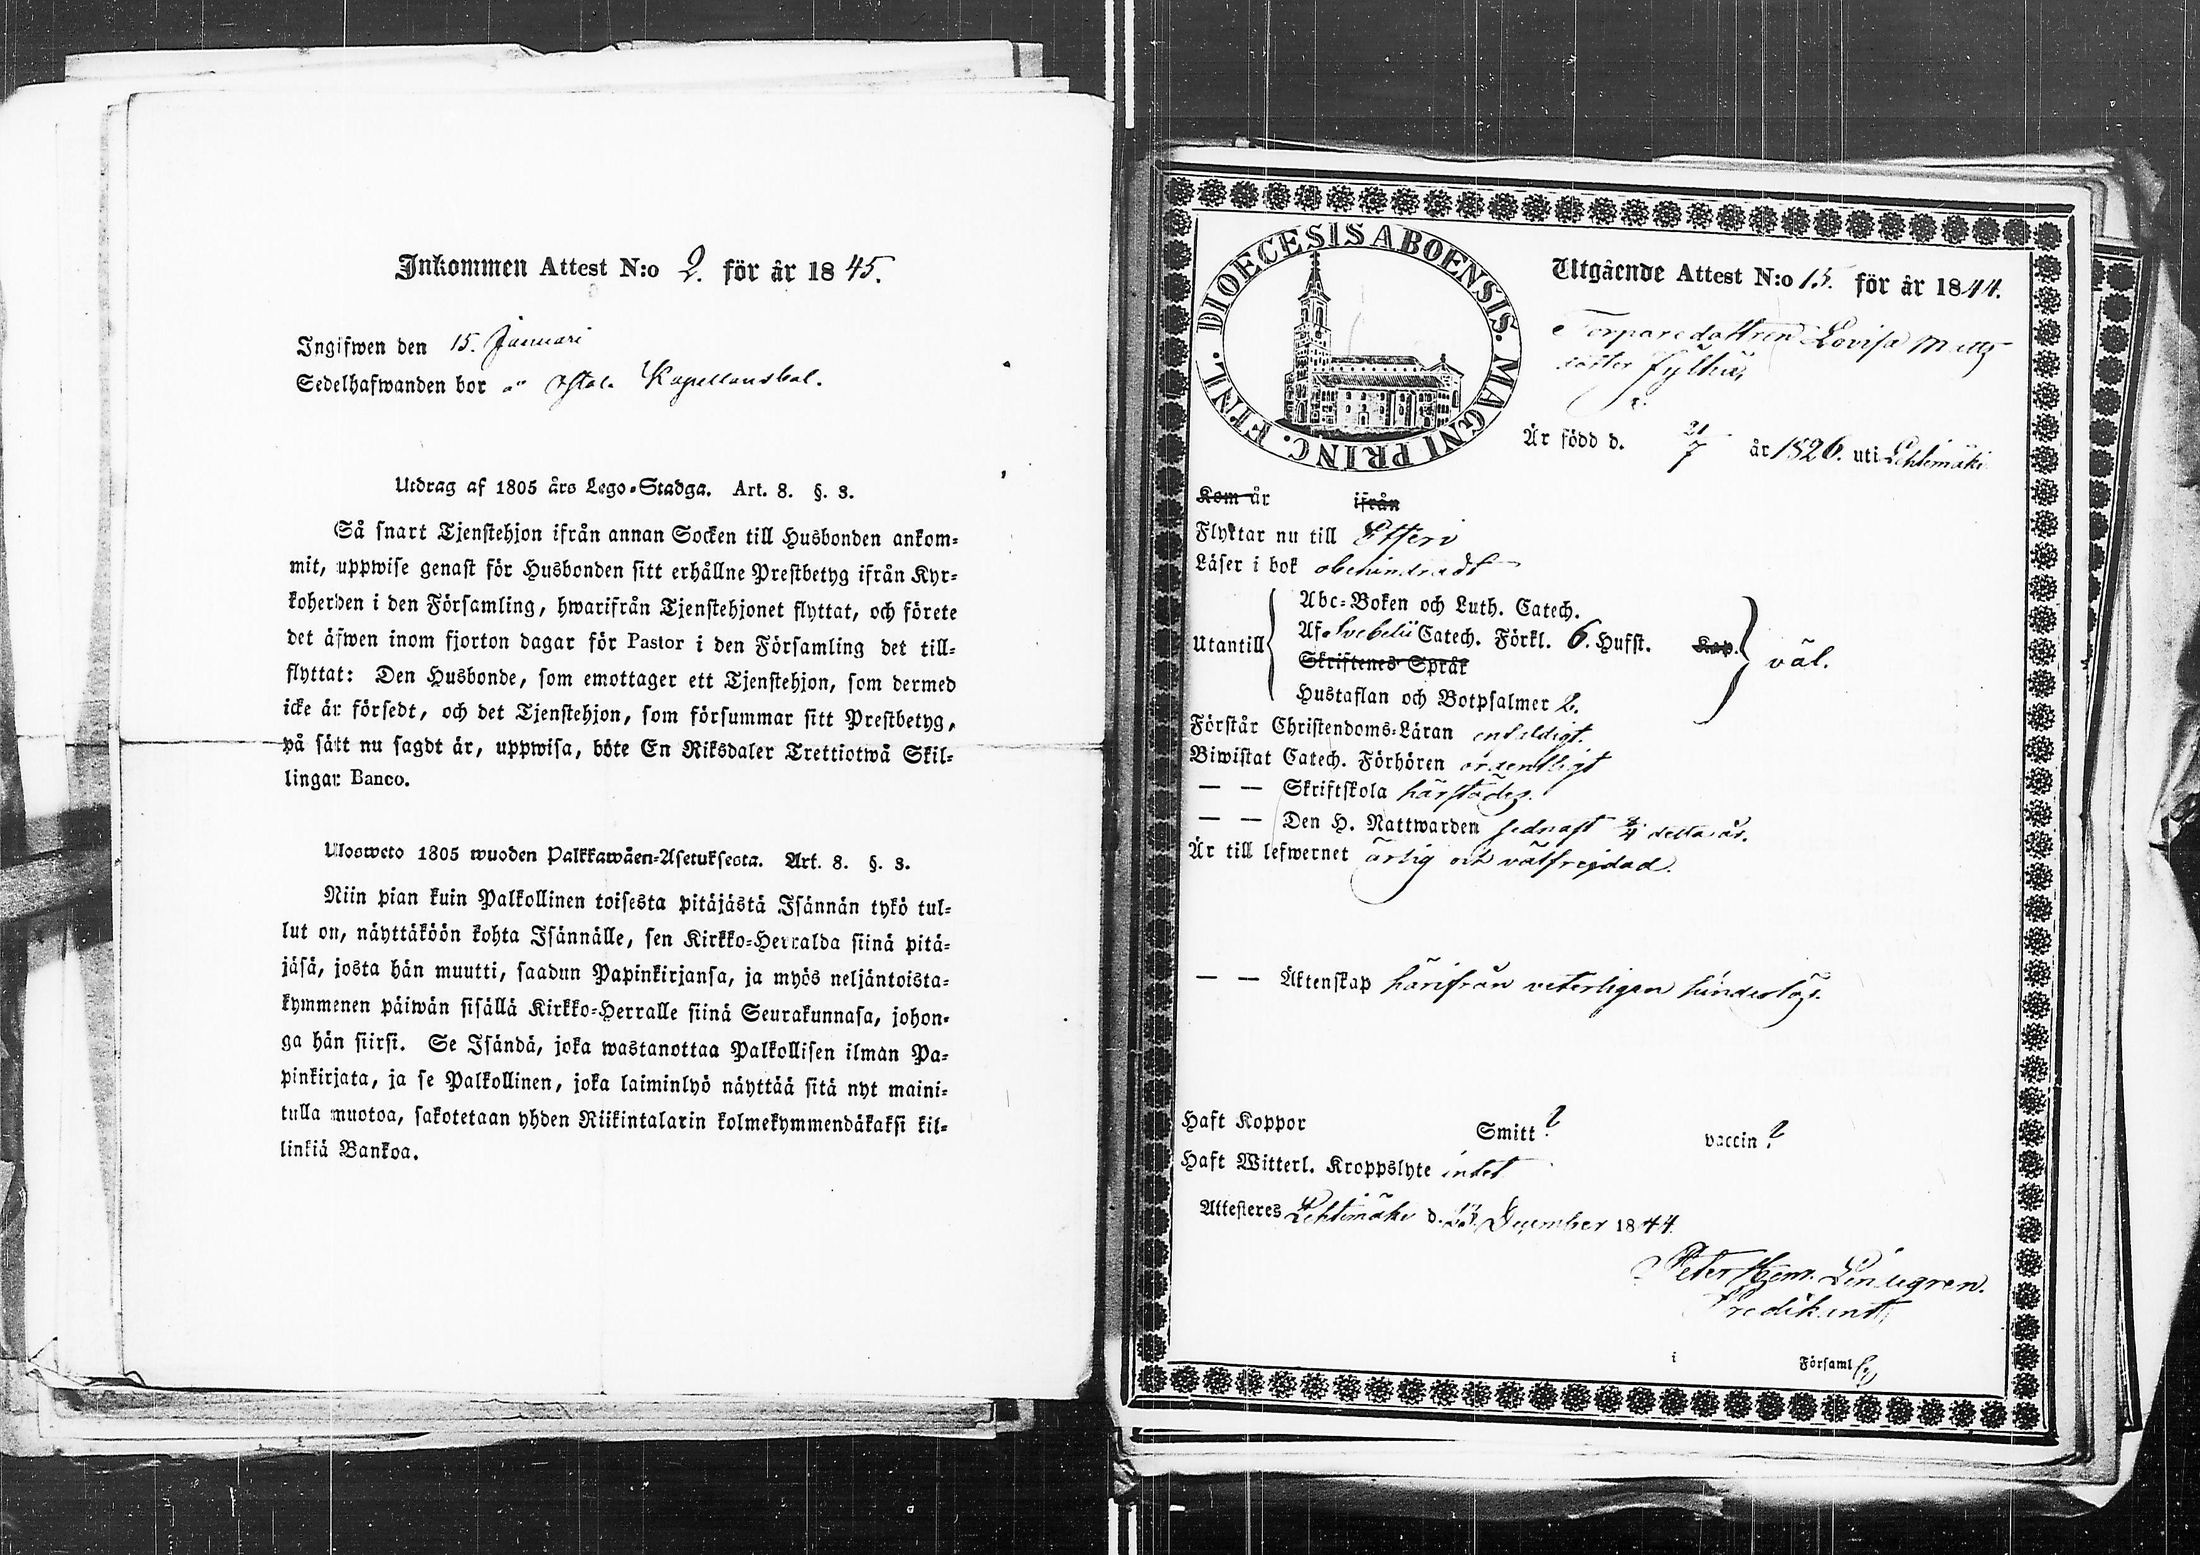 Inkommen Attest N:o 2. för år 1845.
Ingifwen den 15. Januari
Sedelhafwanden bor å Kapellansbol.
Utdrag af 1805 års Lego-Stadga. Art. 8. §. 3.
Så snart Tjenstehjon ifrån annan Socken till Husbonden ankom-
mit, uppwise genast för Husbonden sitt erhållne Prestbetyg ifrån Kyr-
koherden i den Församling, hwarifrån Tjenstehjonet flyttat, och förete
det äfwen inom fjorton dagar för Pastor i den Församling det till-
flyttat: Den Husbonde, som emottager ett Tjenstehjon, som dermed
icke är försedt, och det Tjenstehjon, som försummar sitt Prestbetyg,
på sätt nu sagdt är, uppwisa, böte En Riksdaler Trettiotwå Skil-
lingar Banco.
Ulosweto 1805 wuoden Palkkawäen-Asetuksesta. Art. 8. §. 3.
Niin pian kuin Palkollinen toisesta pitäjästä Isännän tykö tul-
lut on, näyttäköön kohta Isännälle, sen Kirkko-Herralda siinä pitä-
jäsä, josta hän muutti, saadun Papinkirjansa, ja myös neljäntoista-
kymmenen päiwän sisällä Kirkko-Herralle siinä Seurakunnasa, johon-
ga hän siirsi. Se Isändä, joka wastanottaa Palkollisen ilman Pa-
pinkirjata, ja se Palkollinen, joka laiminlyö näyttää sitä nyt maini-
tulla muotoa, sakotetaan yhden Riikintalarin kolmekymmendäkaksi kil-
linkiä Bankoa.
DIOECESIS ABOENSIS. MAGNI PRINC. FINL.
Utgående Attest N:o 15. för år 1844.
Torparedottren Lovisa Matts
dotter
Är född d. 21/7 år 1826. uti Lehtimäki
Kom år ifrån
Flyktar nu till Etseri
Läser i bok obehindradt
Abc-Boken och Luth. Catech.
Utantill Af Svebelii Catech. Förkl. 6. Hufst. Kap. väl.
Skriftenes Språk
Hustaflan och Botpsalmer 2.
Förstår Christendoms-Läran enfaldigt.
Biwistat Catech. Förhören ordentligt
— — Skriftskola härstädes.
— — Den H. Nattwarden sednast detta år.
Är till lefwernet ärlig och välfrejdad.
— — Äktenskap härifrån veterligen hinderlös.
Haft Koppor Smitt? vaccin?
Haft Witterl. Kroppslyte intet
Attesteres Lehtimäki d. December 1844
Peter Herm. Lindegren.
Predikant
i Församl